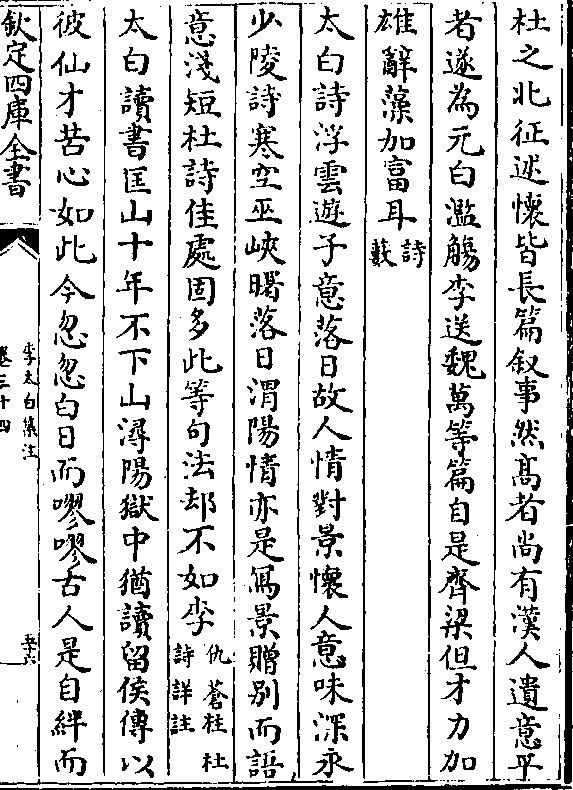 杜之北征述懷皆長篇叙事然髙者尚有漢人遺意平
者遂為元白濫觴李送魏萬等篇自是齊梁但才力加
雄辭藻加富耳詩
藪
太白詩浮雲遊子意落日故人情對景懷人意味深永
少陵詩寒空巫峽曙落日渭陽情亦是寫景贈别而語
意淺短杜詩佳處固多此等句法却不如李仇蒼柱杜
詩詳註
太白讀書匡山十年不下山潯陽獄中猶讀留侯傳以
彼仙才苦心如此今忽忽白日而嘐嘐古人是自絆而
欽定四庫全書
李太白集注
卷三十四